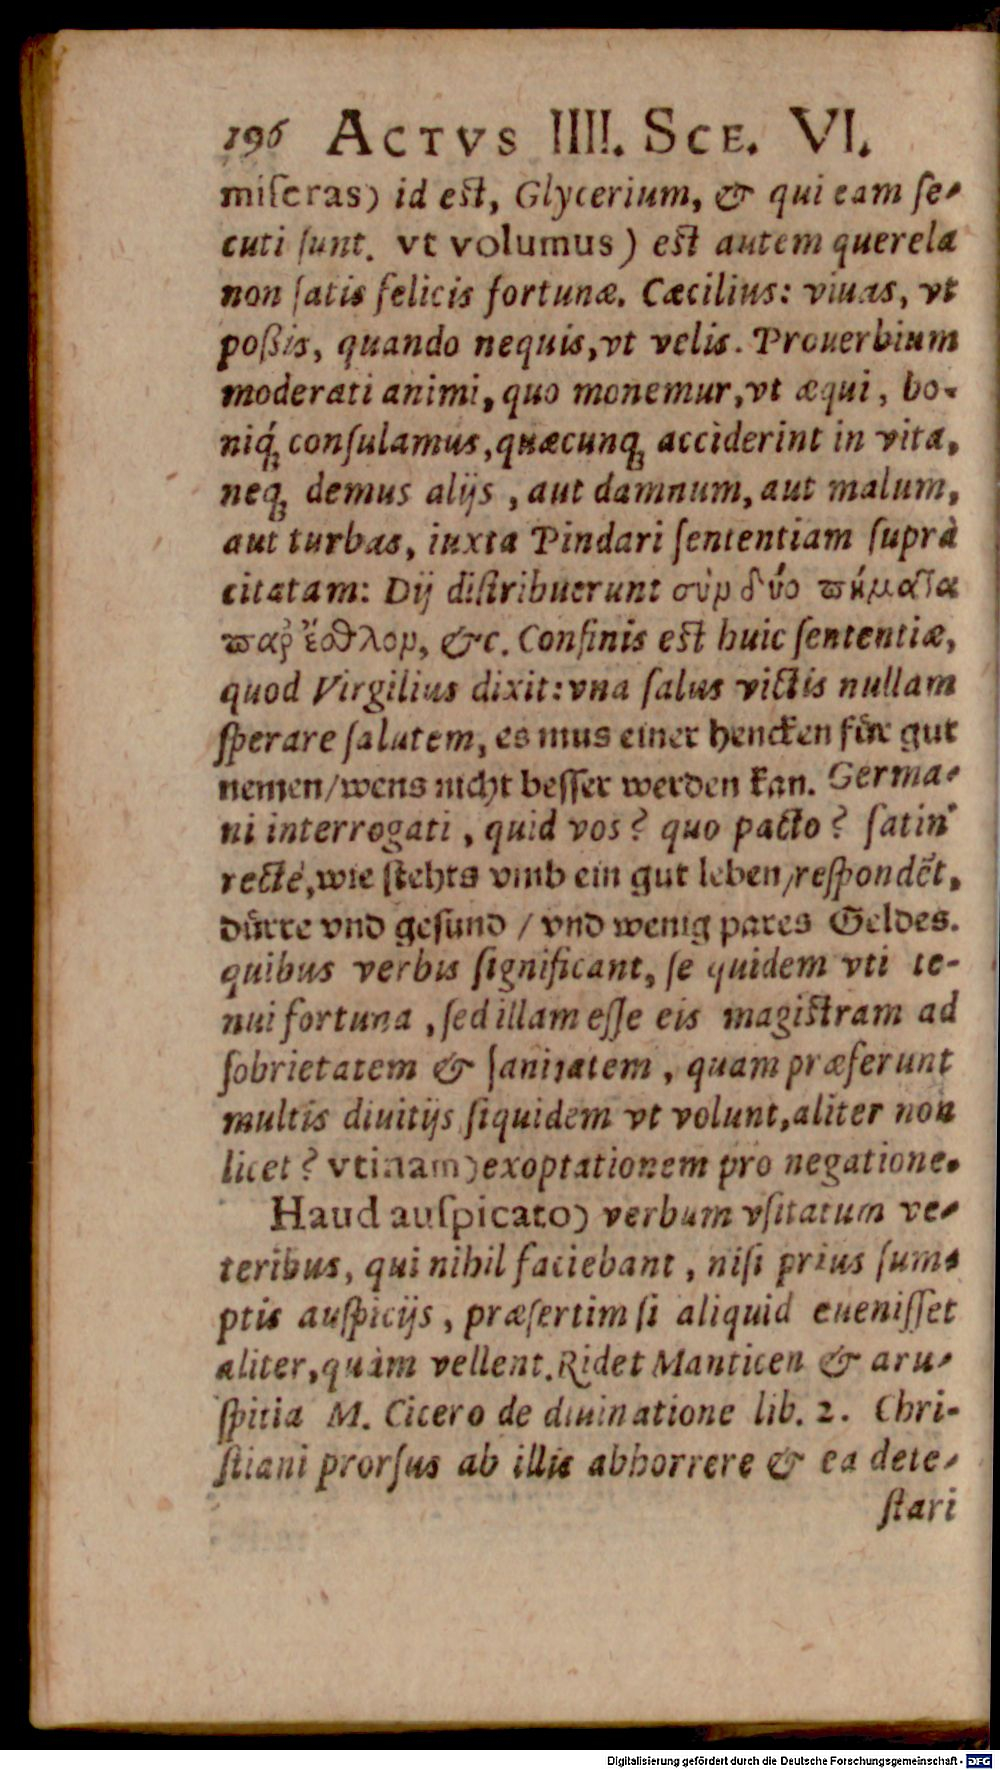 196 ACTVS IIII. SCE. VI.
miſeras) id eſt, Glycerium, & qui eam ſe-
cuti ſunt. vt volumus) eſt autem querela
non ſatis felicis fortunæ. Cæcilius: viuas, vt
poßis, quando nequis, vt velis. Prouerbium
moderati animi, quo monemur, vt æqui, bo-
niq́ꝫ conſulamus, quæcunqꝫ acciderint in vita,
neqꝫ demus alijs, aut damnum, aut malum,
aut turbas, iuxta Pindari ſententiam ſuprà
citatam: Dij diſtribuerunt σὺν δύο πήματα
παρ' ἔσθλον, &c. Confinis eſt huic ſententiæ,
quod Virgilius dixit: vna ſalus victis nullam
ſperare ſalutem, es mus einer hencken fůr gut
nemen/wens nicht beſſer werden kan. Germa-
ni interrogati, quid vos? quo pacto? ſatin'
rectè, wie ſtehts vmb ein gut leben, reſpondēt,
důrre vnd geſund / vnd wenig pares Geldes.
quibus verbis ſignificant, ſe quidem vti te-
nui fortuna, ſed illam eſſe eis magiſtram ad
ſobrietatem & ſanitatem, quam præferunt
multis diuitijs ſiquidem vt volunt, aliter non
licet? vtinam) exoptationem pro negatione.
Haud auſpicato) verbum vſitatum ve-
teribus, qui nihil faciebant, niſi prius ſum-
ptis auſpicijs, præſertim ſi aliquid eueniſſet
aliter, quàm vellent. Ridet Manticen & aru-
ſpitia M. Cicero de diuinatione lib. 2. Chri-
ſtiani prorſus ab illis abhorrere & ea dete-
ſtari
Digitalisierung gefördert durch die Deutsche Forschungsgemeinschaft - DFG